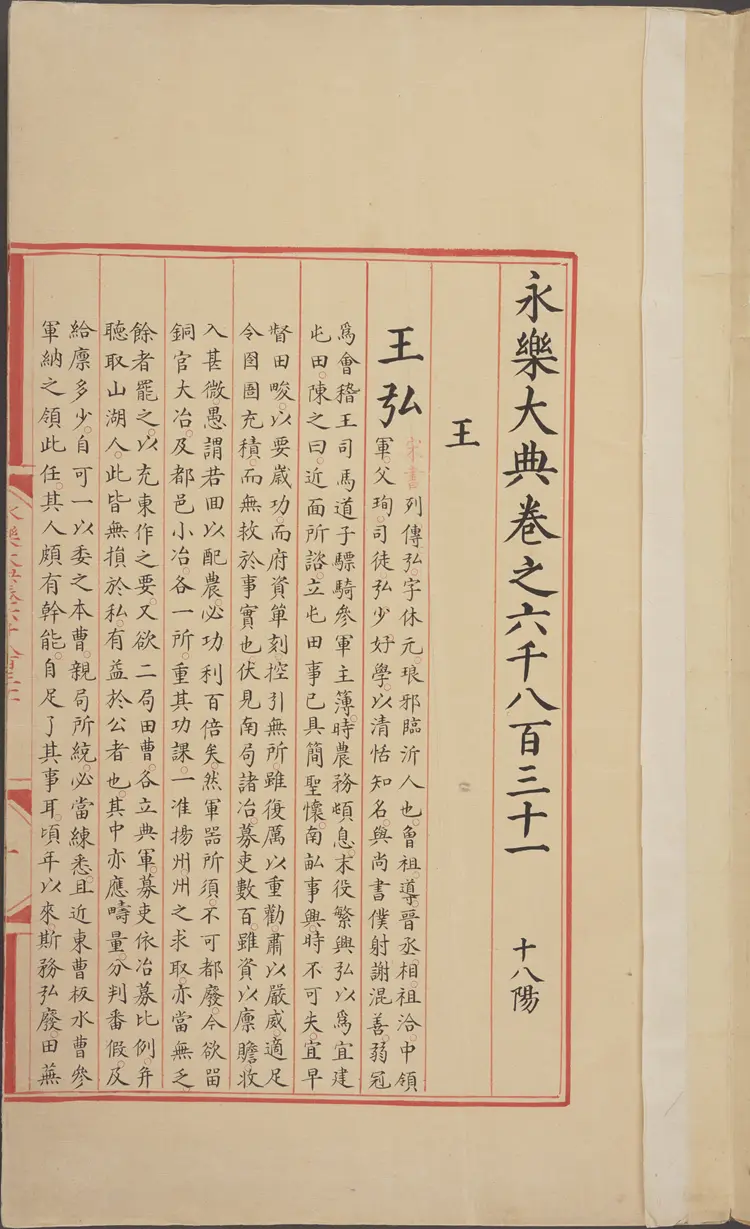 永樂大典卷之六千八百三十一 十八陽
王
王弘 宋書列傳。弘。字休元。琅邪臨沂人也。魯祖。導晉丞相。祖洽。中領
軍。父珣。司徒。弘少好學。以清恬知名。與尚書僕射謝混善。弱冠
爲會稽王司馬道子驃騎參軍主簿。時農務頓息。末役繁興。弘以爲宜建
屯田。陳之曰。近面所諮。立屯田事。已具簡聖懷。南畝事興。時不可失。宜早
督田畯。以要歲功。而府資單刻。控引無所。雖復厲以重勸。肅以嚴威。適足
令囹圄充積。而無救於事實也。伏見南局諸冶。募吏數百。雖資以廩贍收
入甚微。愚謂若回以配農。必功利百倍矣。然軍器所須。不可都廢。今欲留
銅官大冶。及都邑小冶。各一所。重其功課。一准揚州。州之求取。亦當無乏。
餘者罷之。以充東作之要。又欲二局田曹。各立典軍。募吏依冶募比例。并
聽取山湖人。此皆無損於私。有益於公者也。其中亦應疇量。分判番假。及
給廩多少。自可一以委之本曹。親局所統。必當練悉。且近東曹板水曹參
軍納之領此任。其人頗有幹能。自足了其事耳。頃年以來。斯務弘廢。田蕪
永樂大典卷六千八百三十一